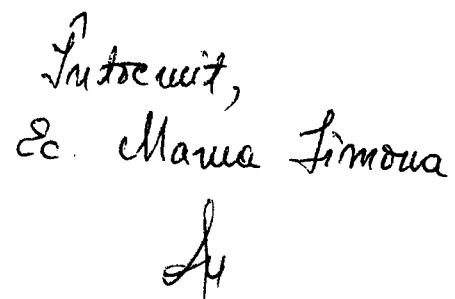 Întocmit,
Ec. Manea Simona